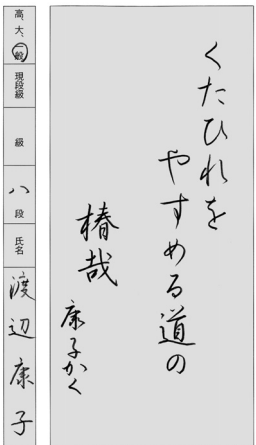 くたひれを
やすめる道の
椿哉
康子かく
高、大、一般
現段級
級
八段
氏名
渡辺康子